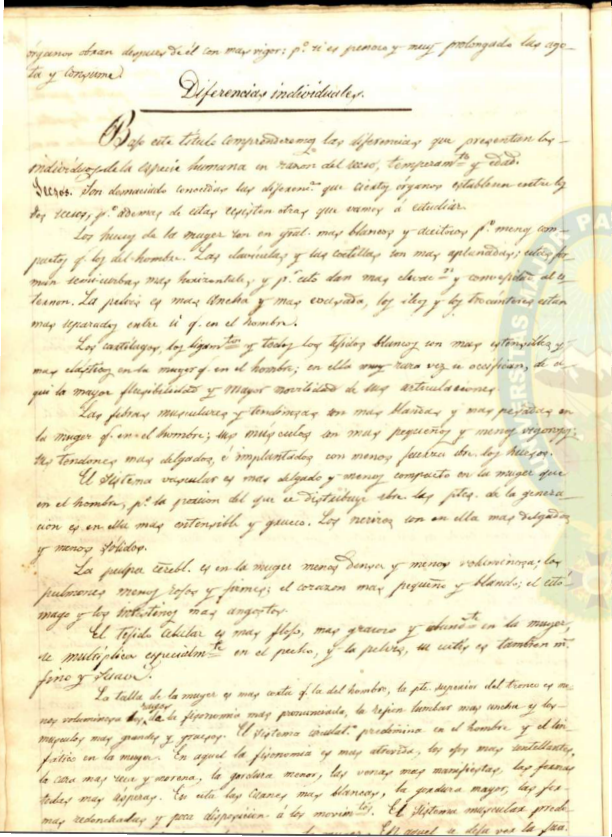 órganos obran despues de él con mas vigor; p.º si es penoso y muy prolongado las ago-
ta y consume.
Diferencias individuales.
Bajo este título comprenderemos las diferencias que presentan los
individuos de la especie humana en razon del secso, temperam.to y edad.
Secsos. Son demasiado conocidas las diferen.s que ciertos órganos establecen entre los
dos secsos; p.º ademas de estas ecsisten otras que vamos á estudiar.
Los huesos de la muger son en gral. mas blancos y p.º menos com-
pactos q. los del hombre. Las claviculas y las costillas son mas aplanadas; estas for-
man mas horizontales, y p.r esto dan mas y al es-
ternon. La pelvis es mas ancha y mas los ileos y los trocanteres estan
mas separados entre si q. en el hombre.
Los cartilagos, los ligam.tos y todos los tejidos blancos son mas estensibles y
mas elásticos en la muger q. en el hombre; en ella muy rara vez se osifican, de a-
qui la mayor flexibilidad y mayor movilidad de sus articulaciones.
Las fibras musculares y tendinosas son mas blandas y mas en
la muger q. en el hombre; sus músculos son mas pequeños y menos vigorosos;
sus tendones mas delgados, é implantados con menos fuerza sbre. los huesos.
El sistema vascular es mas delgado y menos compacto en la muger que
en el hombre, p.º la porcion del que se distribuye sbre las ptes. de la genera-
cion es en ella mas estensible y grueso. Los nervios son en ella mas delgados
y menos sólidos.
La pulpa cerebl. es en la muger menos densa y menos voluminosa; los
pulmones menos rojos y firmes; el corazon mas pequeño y blando; el estó-
mago y los intestinos mas angostos.
El tejido celular es mas flojo, mas grasoso y abund.te en la muger,
se multiplica especialm.te en el pecho, y la pelvis, su cutis es tambien m.s
fino y suave.
La talla de la muger es mas corta q. la del hombre, la pte. superior del tronco es me-
nos voluminosa los rasgos de la fisonomia mas pronunciada, la rejion lumbar mas ancha y los
musculos mas grandes y gruesos. El sistema predomina en el hombre y el lin-
fatico en la muger. En aquel la fisonomia es mas atrevida, los ojos mas centellantes,
la cara mas seca y morena, la gordura menor, las venas mas manifiestas, las formas
todas mas asperas. En esta las carnes mas blancas, la gordura mayor, las for-
mas redondeadas y poca disposicion á los movim.tos. El sistema muscular predo-
mina la muger. En aquel se deja ver la